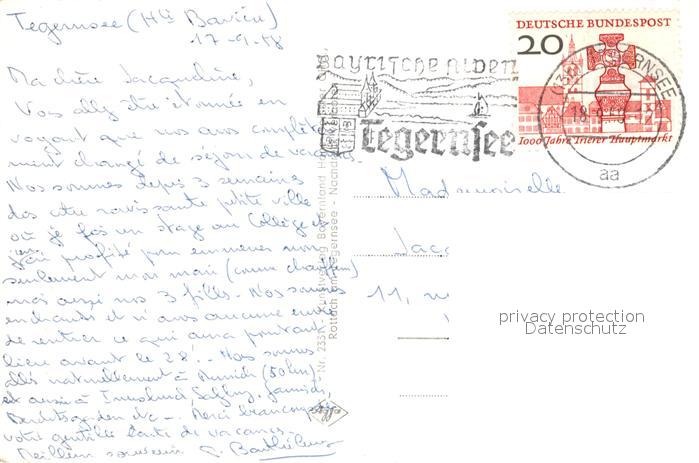 Tegernsee (Hte Bavière)
17-9-58
Ma chère Jacqueline,
Vous allez être étonnée en
voyant que nous avons complète
ment changé de séjour de vacances.
Nous sommes depuis 3 semaines
dans cette ravissante petite ville
où je fais un stage au Collège et
j'en ai profité pour emmener non
seulement mon mari (comme chauffeur)
mais aussi nos 3 filles. Nous sommes
enchantés et n'avons aucune envie
de rentrer ce qui aura pourtant
lieu avant le 28. - Nous sommes
allés naturellement à Munich (50 km)
et aussi à Innsbruck, Salzburg, Garmisch,
Berchtesgaden etc - Merci beaucoup
votre gentille carte de vacances.
Meilleur souvenir Barthélemy
DEUTSCHE BUNDESPOST
20
1000 Jahre Trierer Hauptmarkt
Bayrische Alpen
Tegernsee
TEGERNSEE
aa
Mademoiselle
Jacq
11, r
Nr. 2331
Rottach am Tegernsee
privacy protection
Datenschutz